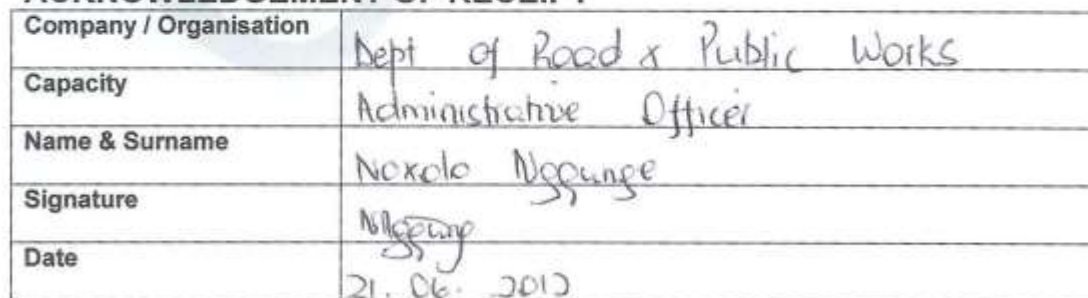 ACKNOWLEDGEMENT OF RECEIPT
Company / Organisation
Dept of Road & Public Works
Capacity
Administrative Officer
Name & Surname
Noxolo
Signature
Date
21. 06. 2012